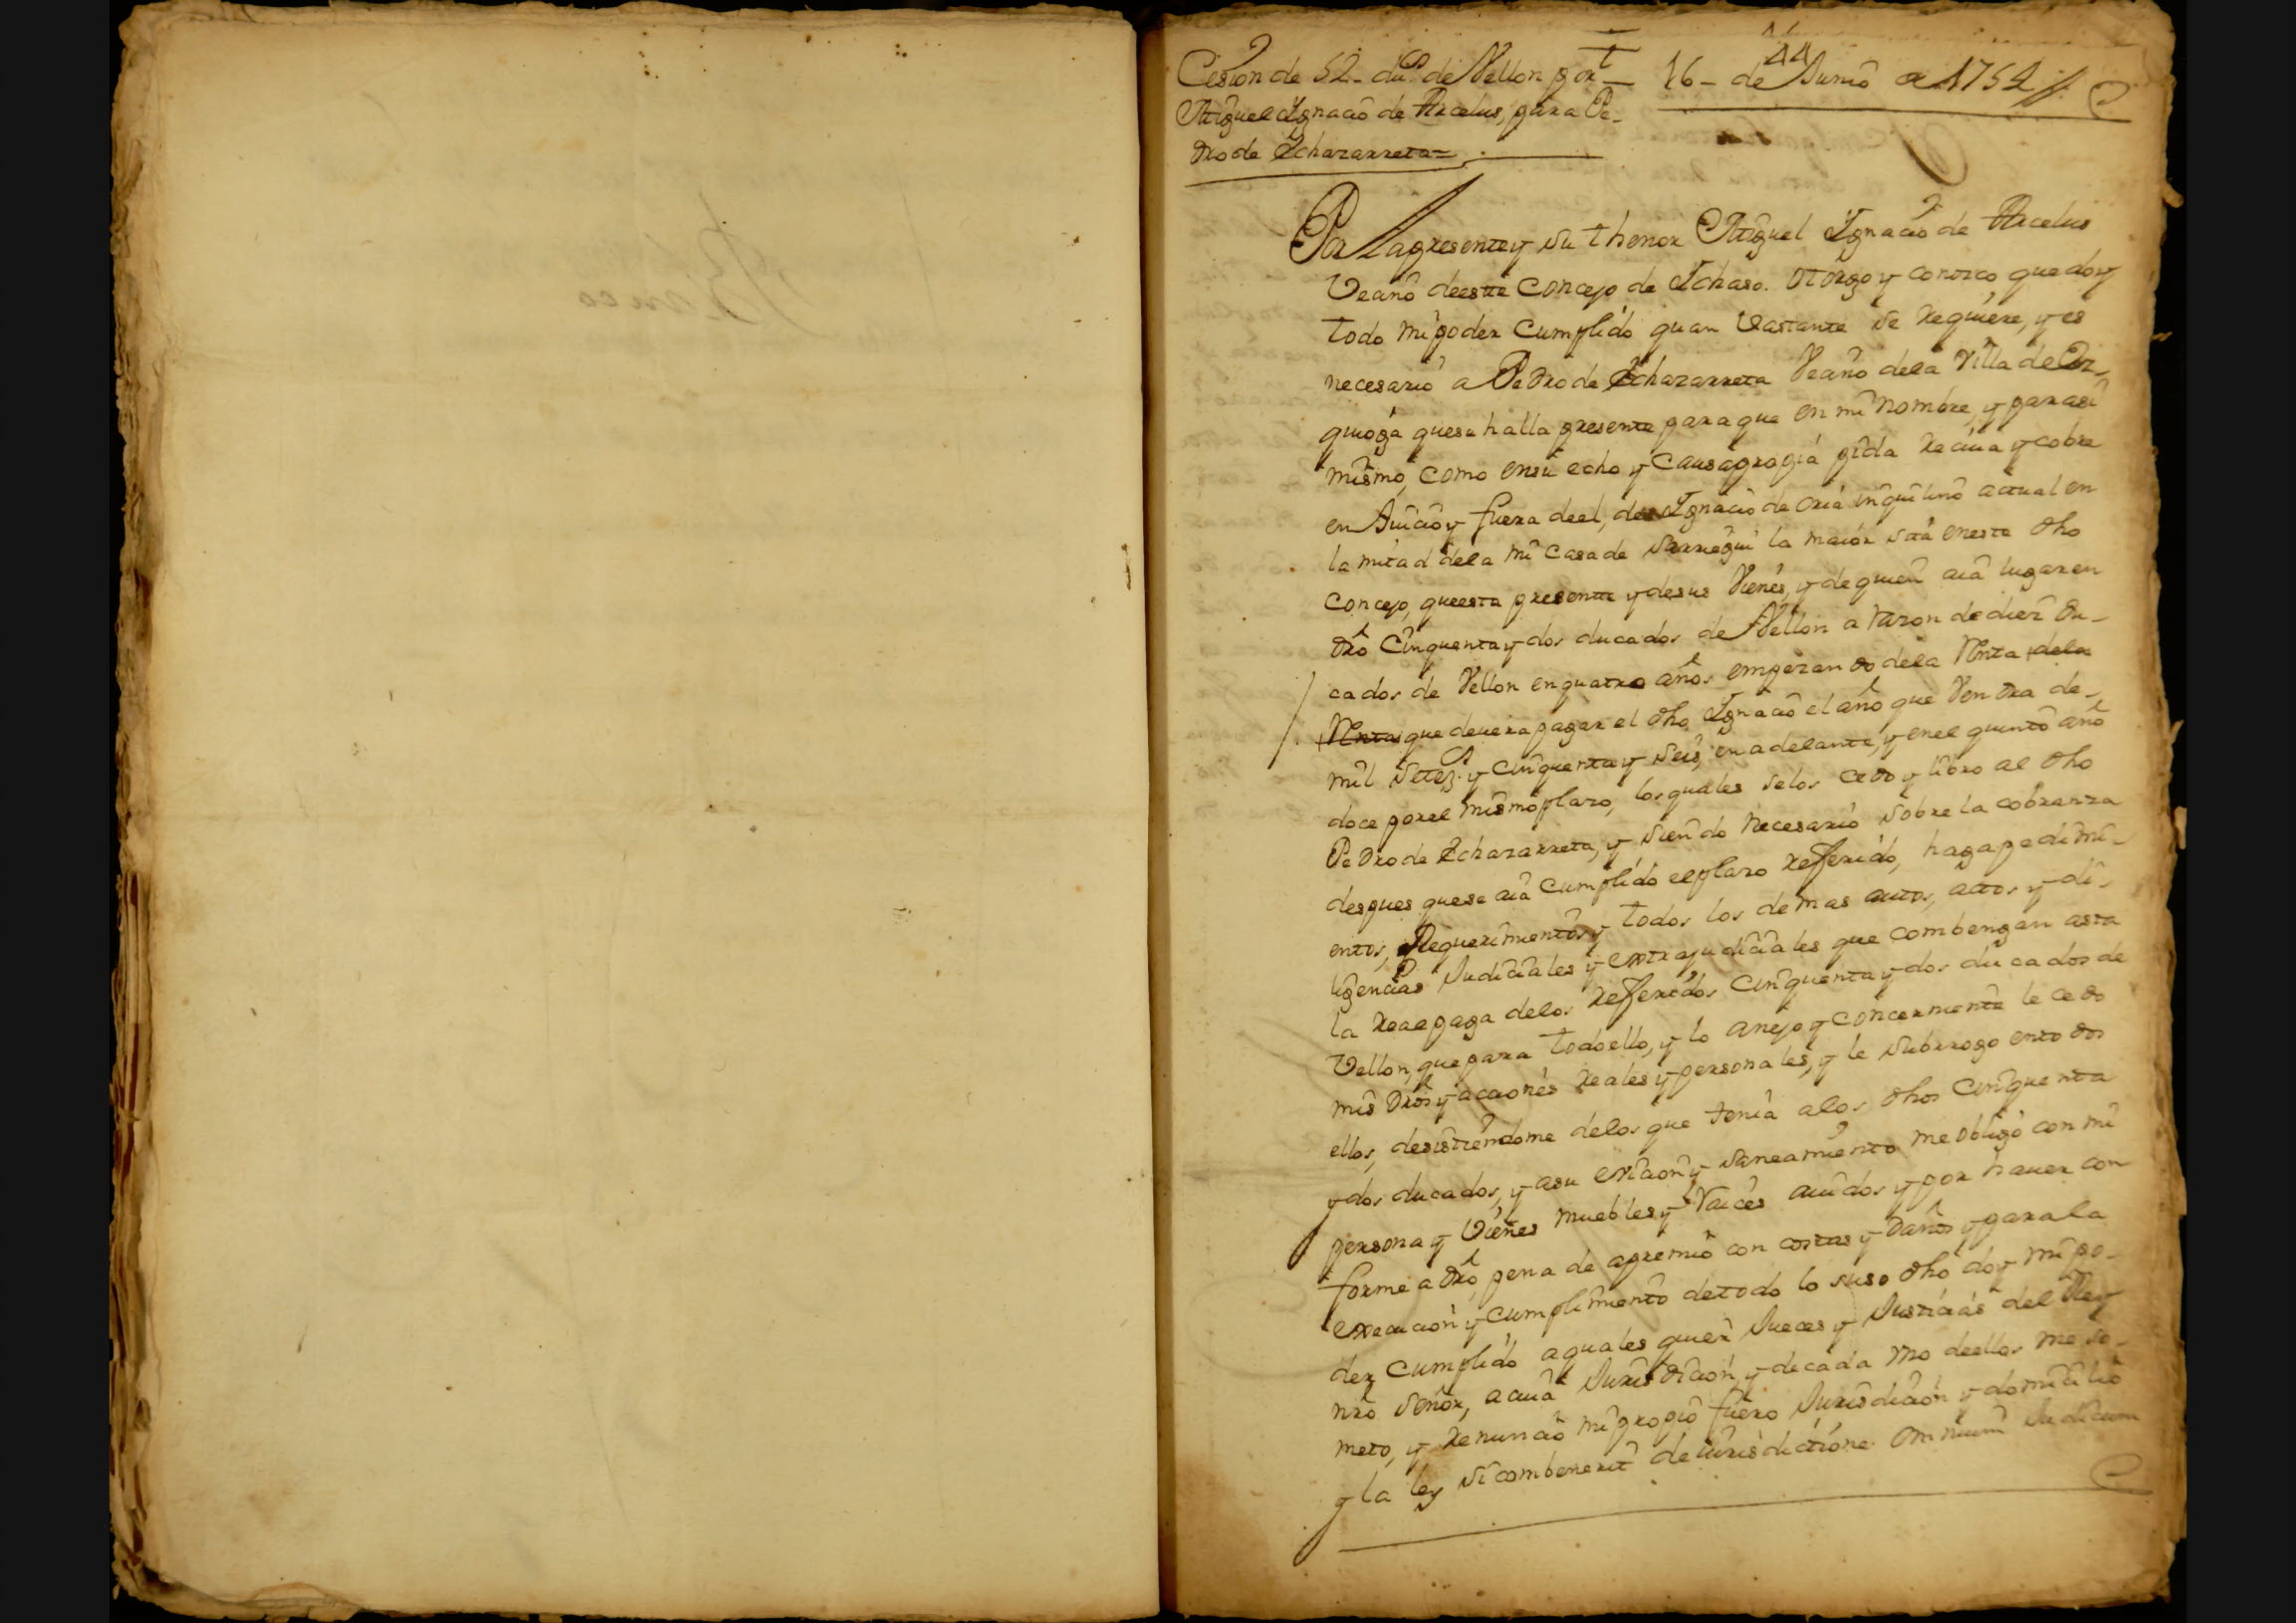 44
Cesion de 52. du.s de Vellon por
Miguel Ignacio de Arcelus, para Pe-
dro de Echazarreta=
16- de Junio de 1754
Por la presente y su thenor Miguel Ignacio de Arcelus
Vecino de este Concejo de Ichaso. Otorgo y conozco que doy
todo mi poder Cumplido quan Vastante se requiere, y es
necesario a Pedro de Echazarreta Vecino dela Villa de Or-
quioga quese halla presente paraque en mi nombre, y para si
mismo, como ensu echo y Causa propia pida reciva y cobre
en Juicio y fuera deel, de Ignacio de Oria inquilino actual en
la mitad dela mi Casa de Sarriegui la maior sita eneste dho
Concejo, queesta presente y desus Vienes, y de quien aia lugar en
dro Cinquenta y dos ducados de Vellon a razon de diez du-
cados de Vellon en quatro años empezando dela Renta dela
Renta que devera pagar el dho Ignacio el año que Vendra de-
mil Setez.s y cinquenta y seis, en adelante, y enel quinto año
doce porel mismo plazo, los quales selos cedo y libro al dho
Pedro de Echazarreta, y siendo necesario sobre la cobranza
despues quese aia Cumplido el plazo refferido, haga pedimi-
entos, Requerimientos y todos los demas autos, actos y di-
ligencias Judiciales y extrajudiciales que combengan asta
la real paga delos refferidos Cinquenta y dos ducados de
Vellon, que para todo ello, y lo anejo y concerniente le cedo
mis dros y acciones reales y personales, y le subrrogo en todos
ellos, desistiendome delos que tenia alos dhos Cinquenta
y dos ducados, y asu eviccion y saneamiento me obligo con mi
persona y Vienes muebles y raices avidos y por haver con
forme a dro, pena de apremio con costas y daños y para la
execucion y Cumplimiento detodo lo suso dho doy mi po-
der Cumplido a quales quier Jueces y Justicias del Rey
nro Señor, a cuia Jurisdicion y de cada uno deellos me so-
meto, y renuncio mi propio fuero Jurisdicion y domicilio
y la ley si combenerit de iurisdictione omnium Judicum